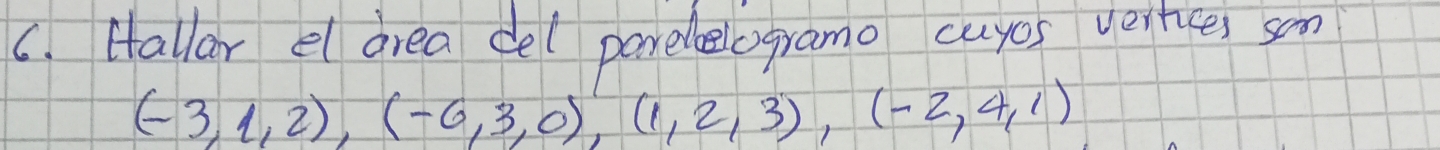 6. Hallar el área del paralelogramo cuyos vertices son:
(-3,1,2), (-6,3,0), (1,2,3), (-2,4,1)